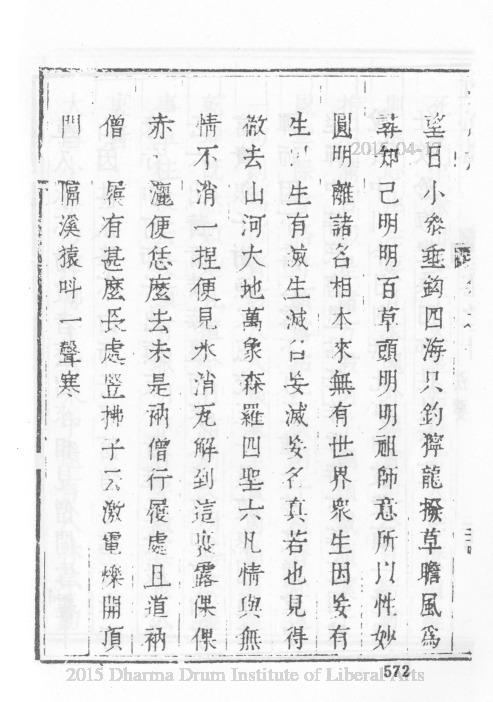 望日小參垂鈎四海只釣獰龍撥草瞻風爲
尋知己明明百草頭明明祖師意所以性妙
圓明離諸名相本來無有世界衆生因妄有
生因生有滅生滅名妄滅妄名真若也見得
徹去山河大地萬象森羅四聖六凡情與無
情不消一捏便見氷消瓦解到這裏露倮倮
赤灑灑便恁麼去未是衲僧行履處且道衲
僧行履有甚麼長處豎拂子云激電爍開頂
門 隔溪猿呌一聲寒
572
2015-04-17
2015 Dharma Drum Institute of Liberal Arts